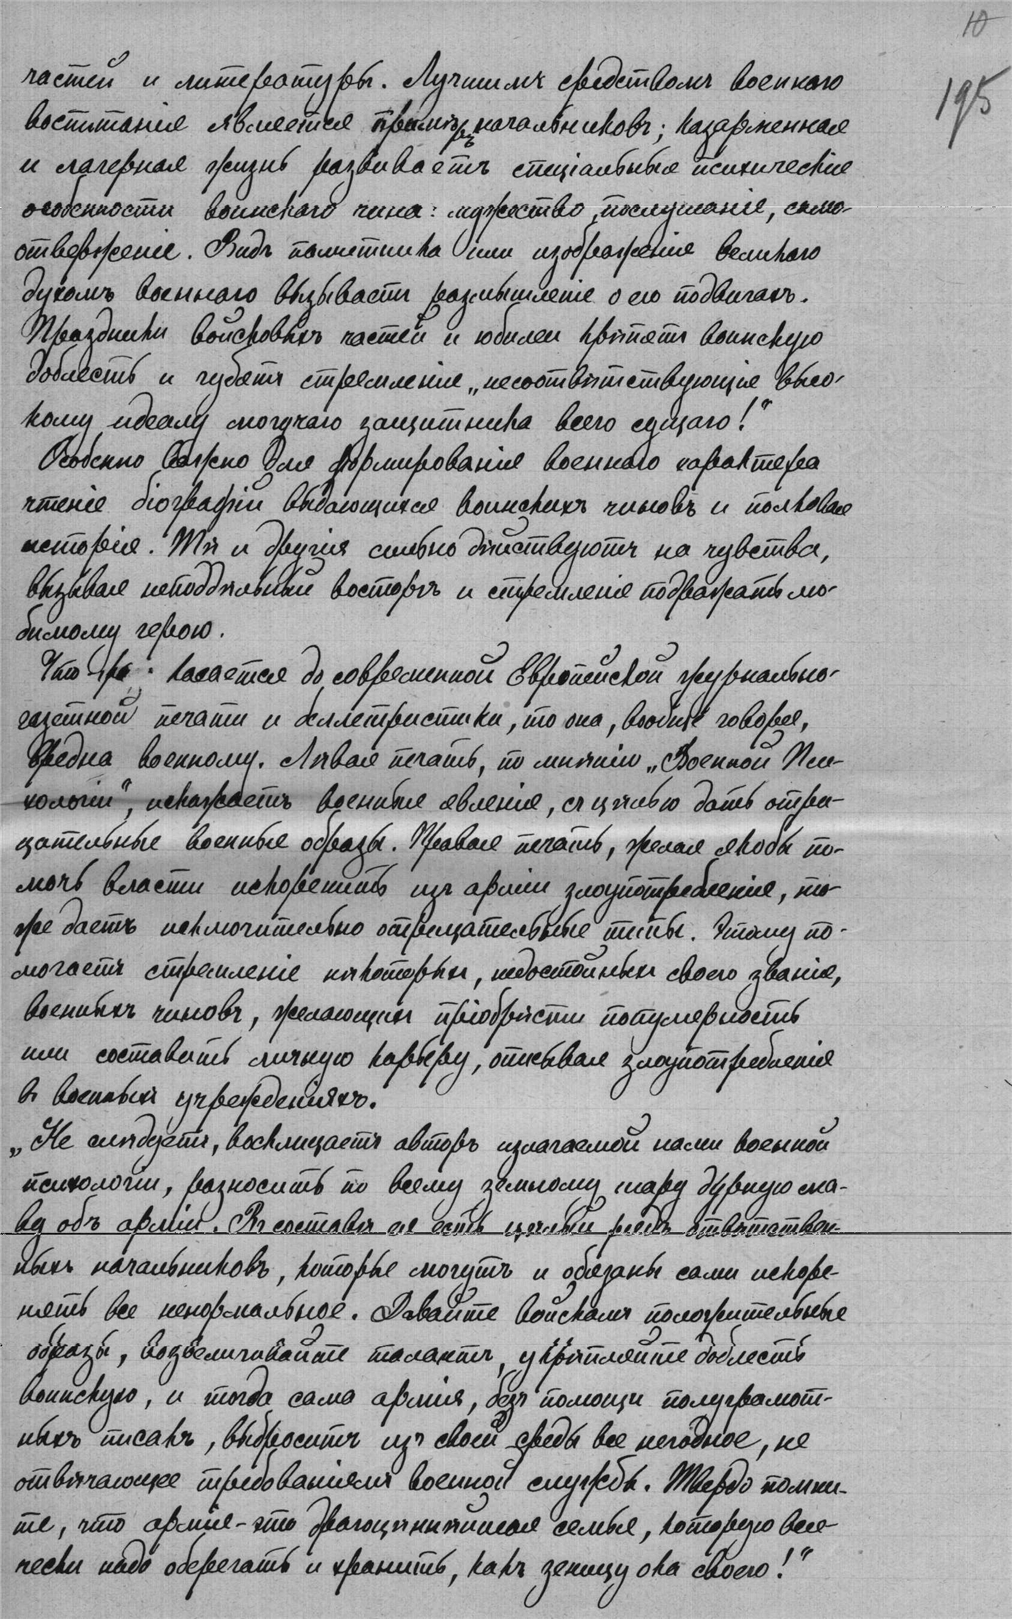 10
195
частей и литературы. Лучшимъ средствомъ военнаго
воспитанія является примѣръ начальниковъ; казарменная
и лагерная жизнь развиваетъ спеціальныя психическія
особенности воинскаго чина: мужество, послушаніе, само-
отверженіе. Видъ памятника или изображенія великаго
духомъ военнаго вызываетъ размышленіе о его подвигахъ.
Праздники войсковыхъ частей и юбилеи крѣпятъ воинскую
доблесть и губятъ стремленія „несоотвѣтствующія высо-
кому идеалу могучаго защитника всего сущаго!"
Особенно важно для формированія военнаго характера
чтеніе біографій выдающихся воинскихъ чиновъ и полковая
исторія. Тѣ и другія сильно дѣйствуютъ на чувства,
вызывая неподдѣльный восторгъ и стремленіе подражать лю-
бимому герою.
Что же касается до современной Европейской журнально-
газетной печати и беллетристики, то она, вообще говоря,
вредна военному. Лѣвая печать, по мнѣнію „Военной Пси-
хологіи", искажаетъ военныя явленія, съ цѣлью дать отри-
цательные военные образы. Правая печать, желая якобы по-
мочь власти искоренить изъ арміи злоупотребленія, то-
же даетъ исключительно отрицательные типы. Этому по-
могаетъ стремленіе нѣкоторыхъ, недостойныхъ своего званія,
военныхъ чиновъ, желающихъ пріобрѣсти популярность
или составить личную карьеру, описывая злоупотребленія
въ военныхъ учрежденіяхъ.
„Не слѣдуетъ, восклицаетъ авторъ излагаемой нами военной
психологіи, разносить по всему земному шару дурную сла-
ву объ арміи. Въ составѣ ея есть цѣлый рядъ отвѣтствен-
ныхъ начальниковъ, которые могутъ и обязаны сами искоре-
нять все ненормальное. Давайте войскамъ положительные
образы, возвеличивайте талантъ, укрѣпляйте доблесть
воинскую, и тогда сама армія, безъ помощи полуграмот-
ныхъ писакъ, выброситъ изъ своей среды все негодное, не
отвѣчающее требованіямъ военной службы. Твердо помни-
те, что армія-это драгоцѣннѣйшая семья, которую вся-
чески надо оберегать и хранить, какъ зеницу ока своего!"